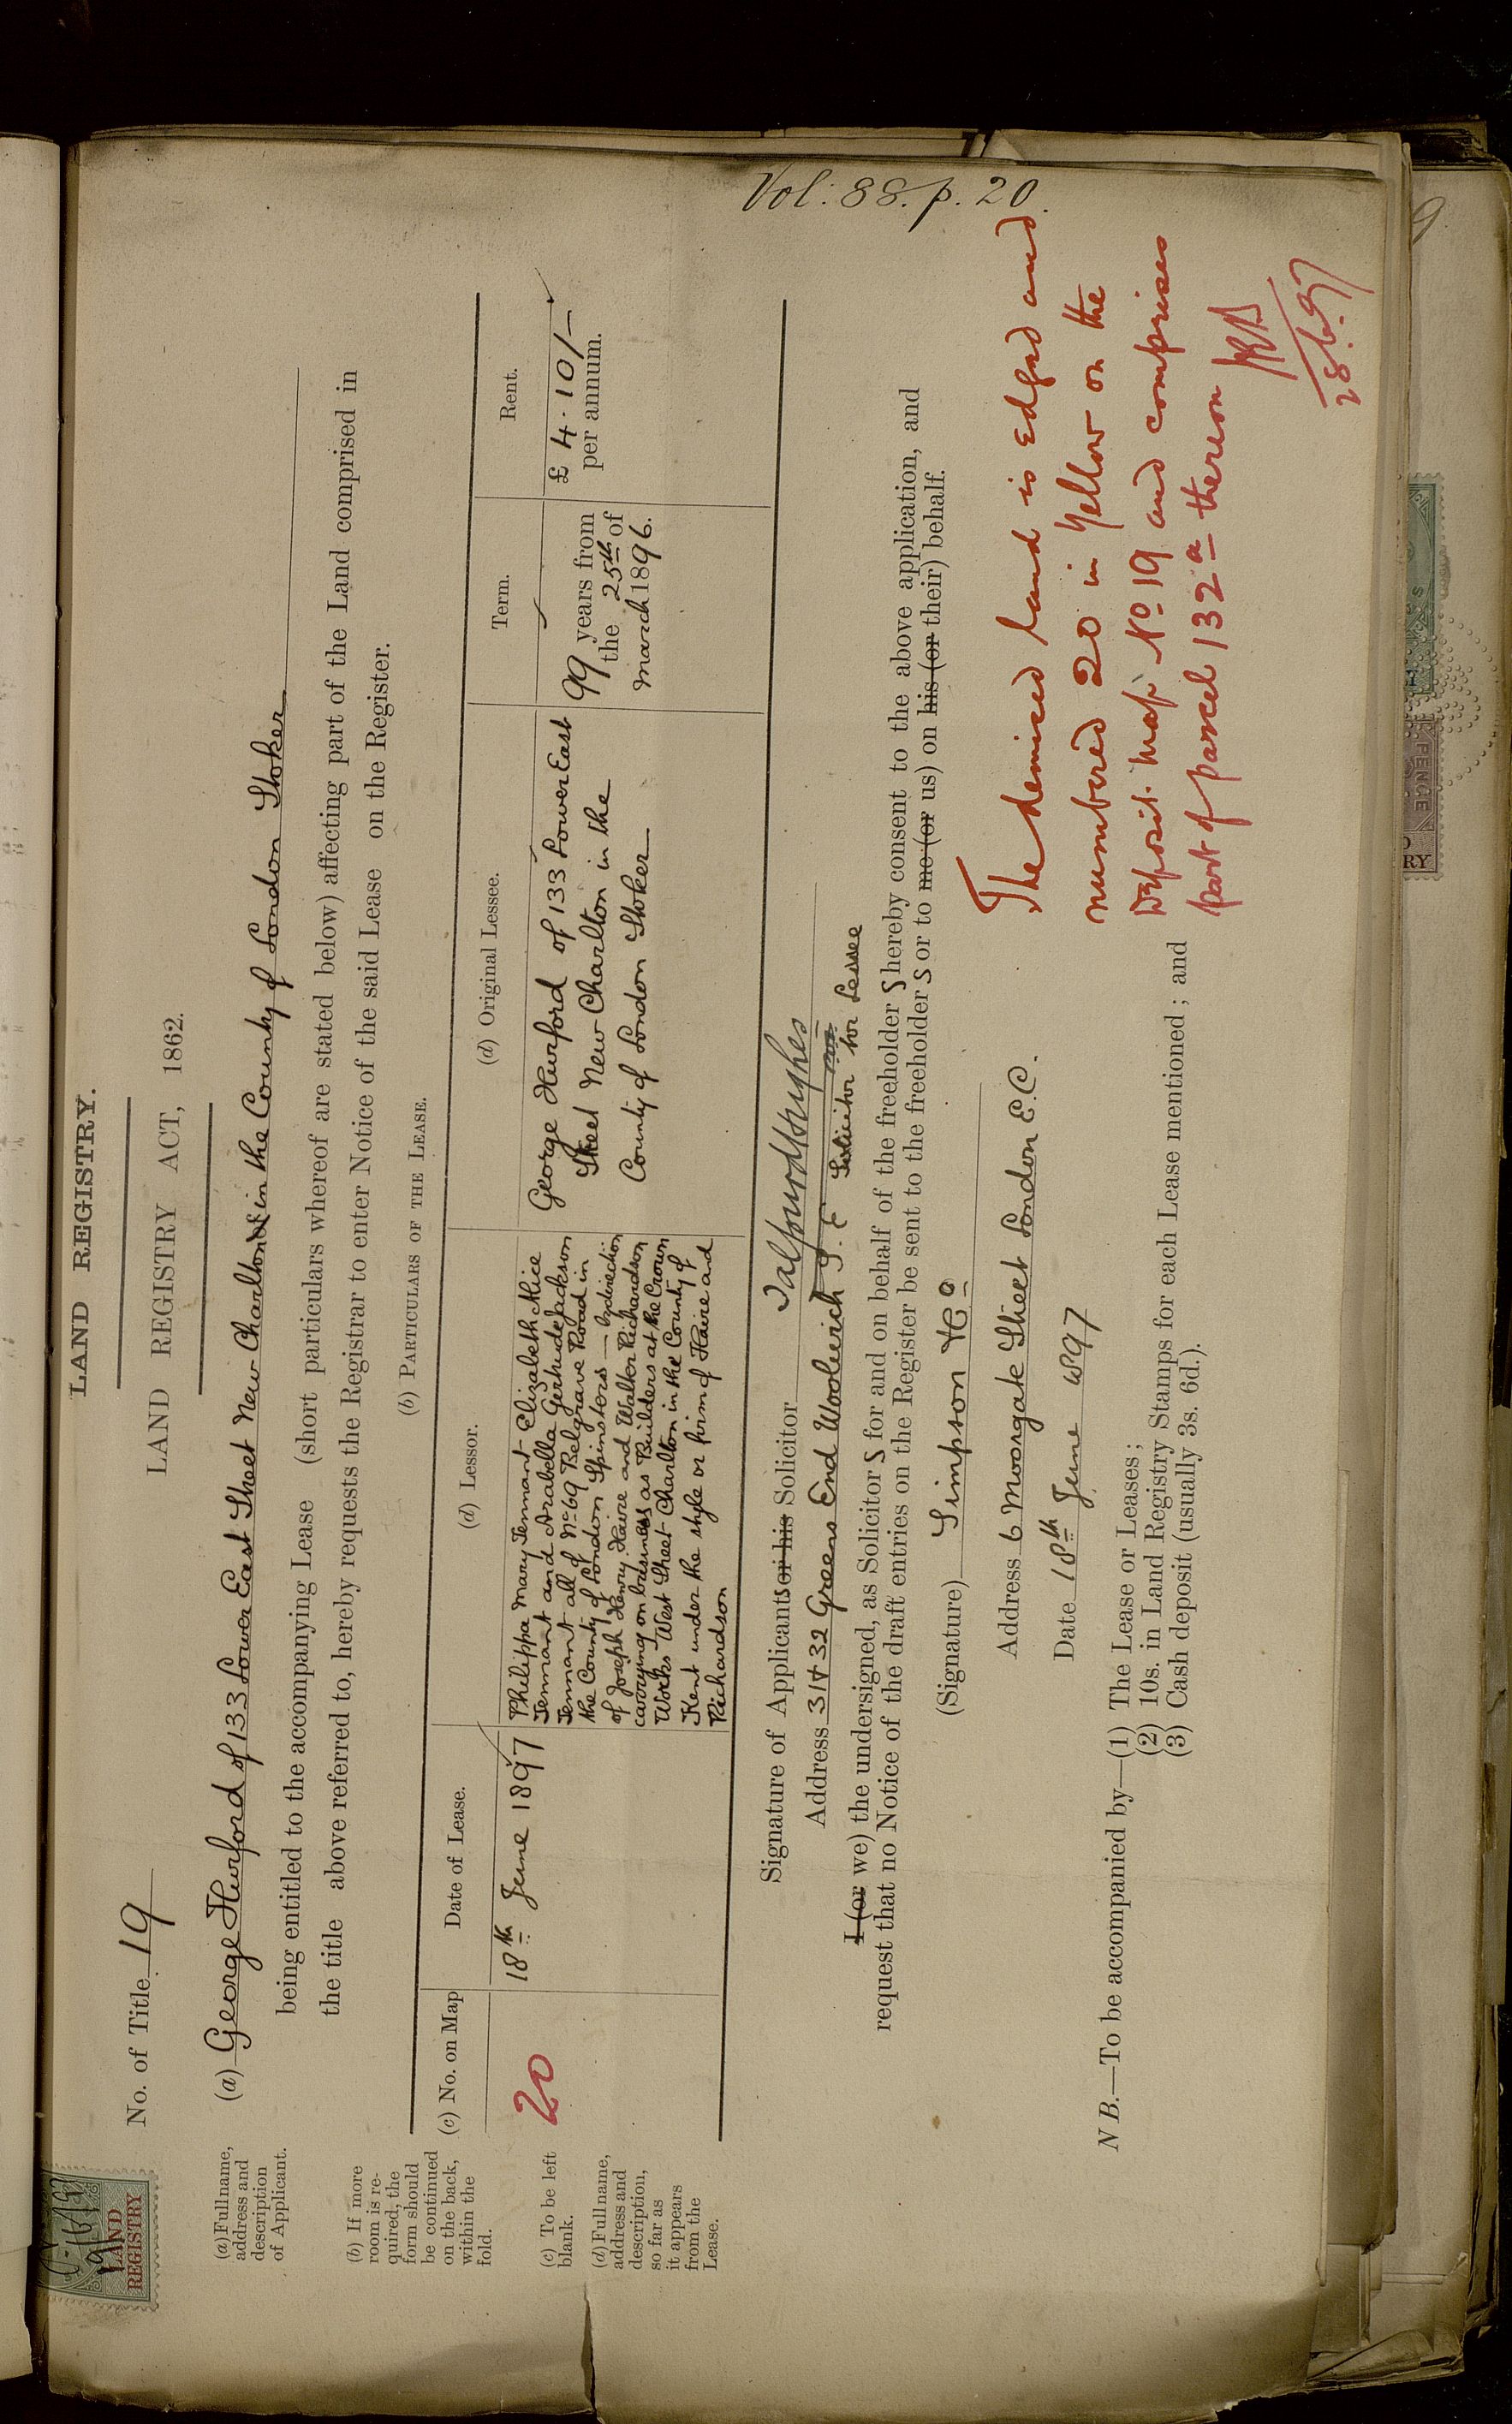 LAND REGISTRY.
LAND REGISTRY ACT, 1862.
LAND
REGISTRY
No. of Title 19
Vol: 88. p. 20.
(a) George Hurford of 133 Lower East Street New Charlton in the County of London Stoker
being entitled to the accompanying Lease (short particulars whereof are stated below) affecting part of the Land comprised in
the title above referred to, hereby requests the Registrar to enter Notice of the said Lease on the Register.
(a) Full name,
address and
description
of Applicant.
(b) If more
room is re-
quired, the
form should
be continued
on the back,
within the
fold.
(c) To be left
blank.
(d) Full name,
address and
description,
so far as
it appears
from the
Lease.
(b) PARTICULARS OF THE LEASE.
(c) No. on Map
20
Date of Lease.
18th June 1897
(d) Lessor.
Philippa Mary Tennant Elizabeth Alice
Tennant and Arabella Gertrude Jackson
Tennant all of No 69 Belgrave Road in
the County of London Spinsters — by direction
of Joseph Henry Haire and Walter Richardson
carrying on business as Builders at the Crown
Works West Street Charlton in the County of
Kent under the style or firm of Haire and
Richardson
(d) Original Lessee.
George Hurford of 133 Lower East
Street New Charlton in the
County of London Stoker
Term.
99 years from
the 25th of
March 1896.
Rent.
£ 4 . 10/-
per annum.
Signature of Applicants or his Solicitor Talfourd Hughes
Address 31 & 32 Greens End Woolwich S.E Solicitor for Lessee
I (or we) the undersigned, as Solicitor s for and on behalf of the freeholder s hereby consent to the above application, and
request that no Notice of the draft entries on the Register be sent to the freeholder s or to me (or us) on his (or their) behalf.
(Signature) Simpson & Co
Address 6 Moorgate Street London E.C.
Date 18th June 1897
The demised land is edged and
numbered 20 in Yellow on the
Deposit. Map No 19 and comprises
part of parcel 132a thereon
28.6.97
N B.—To be accompanied by—(1) The Lease or Leases;
(2) 10s. in Land Registry Stamps for each Lease mentioned; and
(3) Cash deposit (usually 3s. 6d.).
PENCE
RY